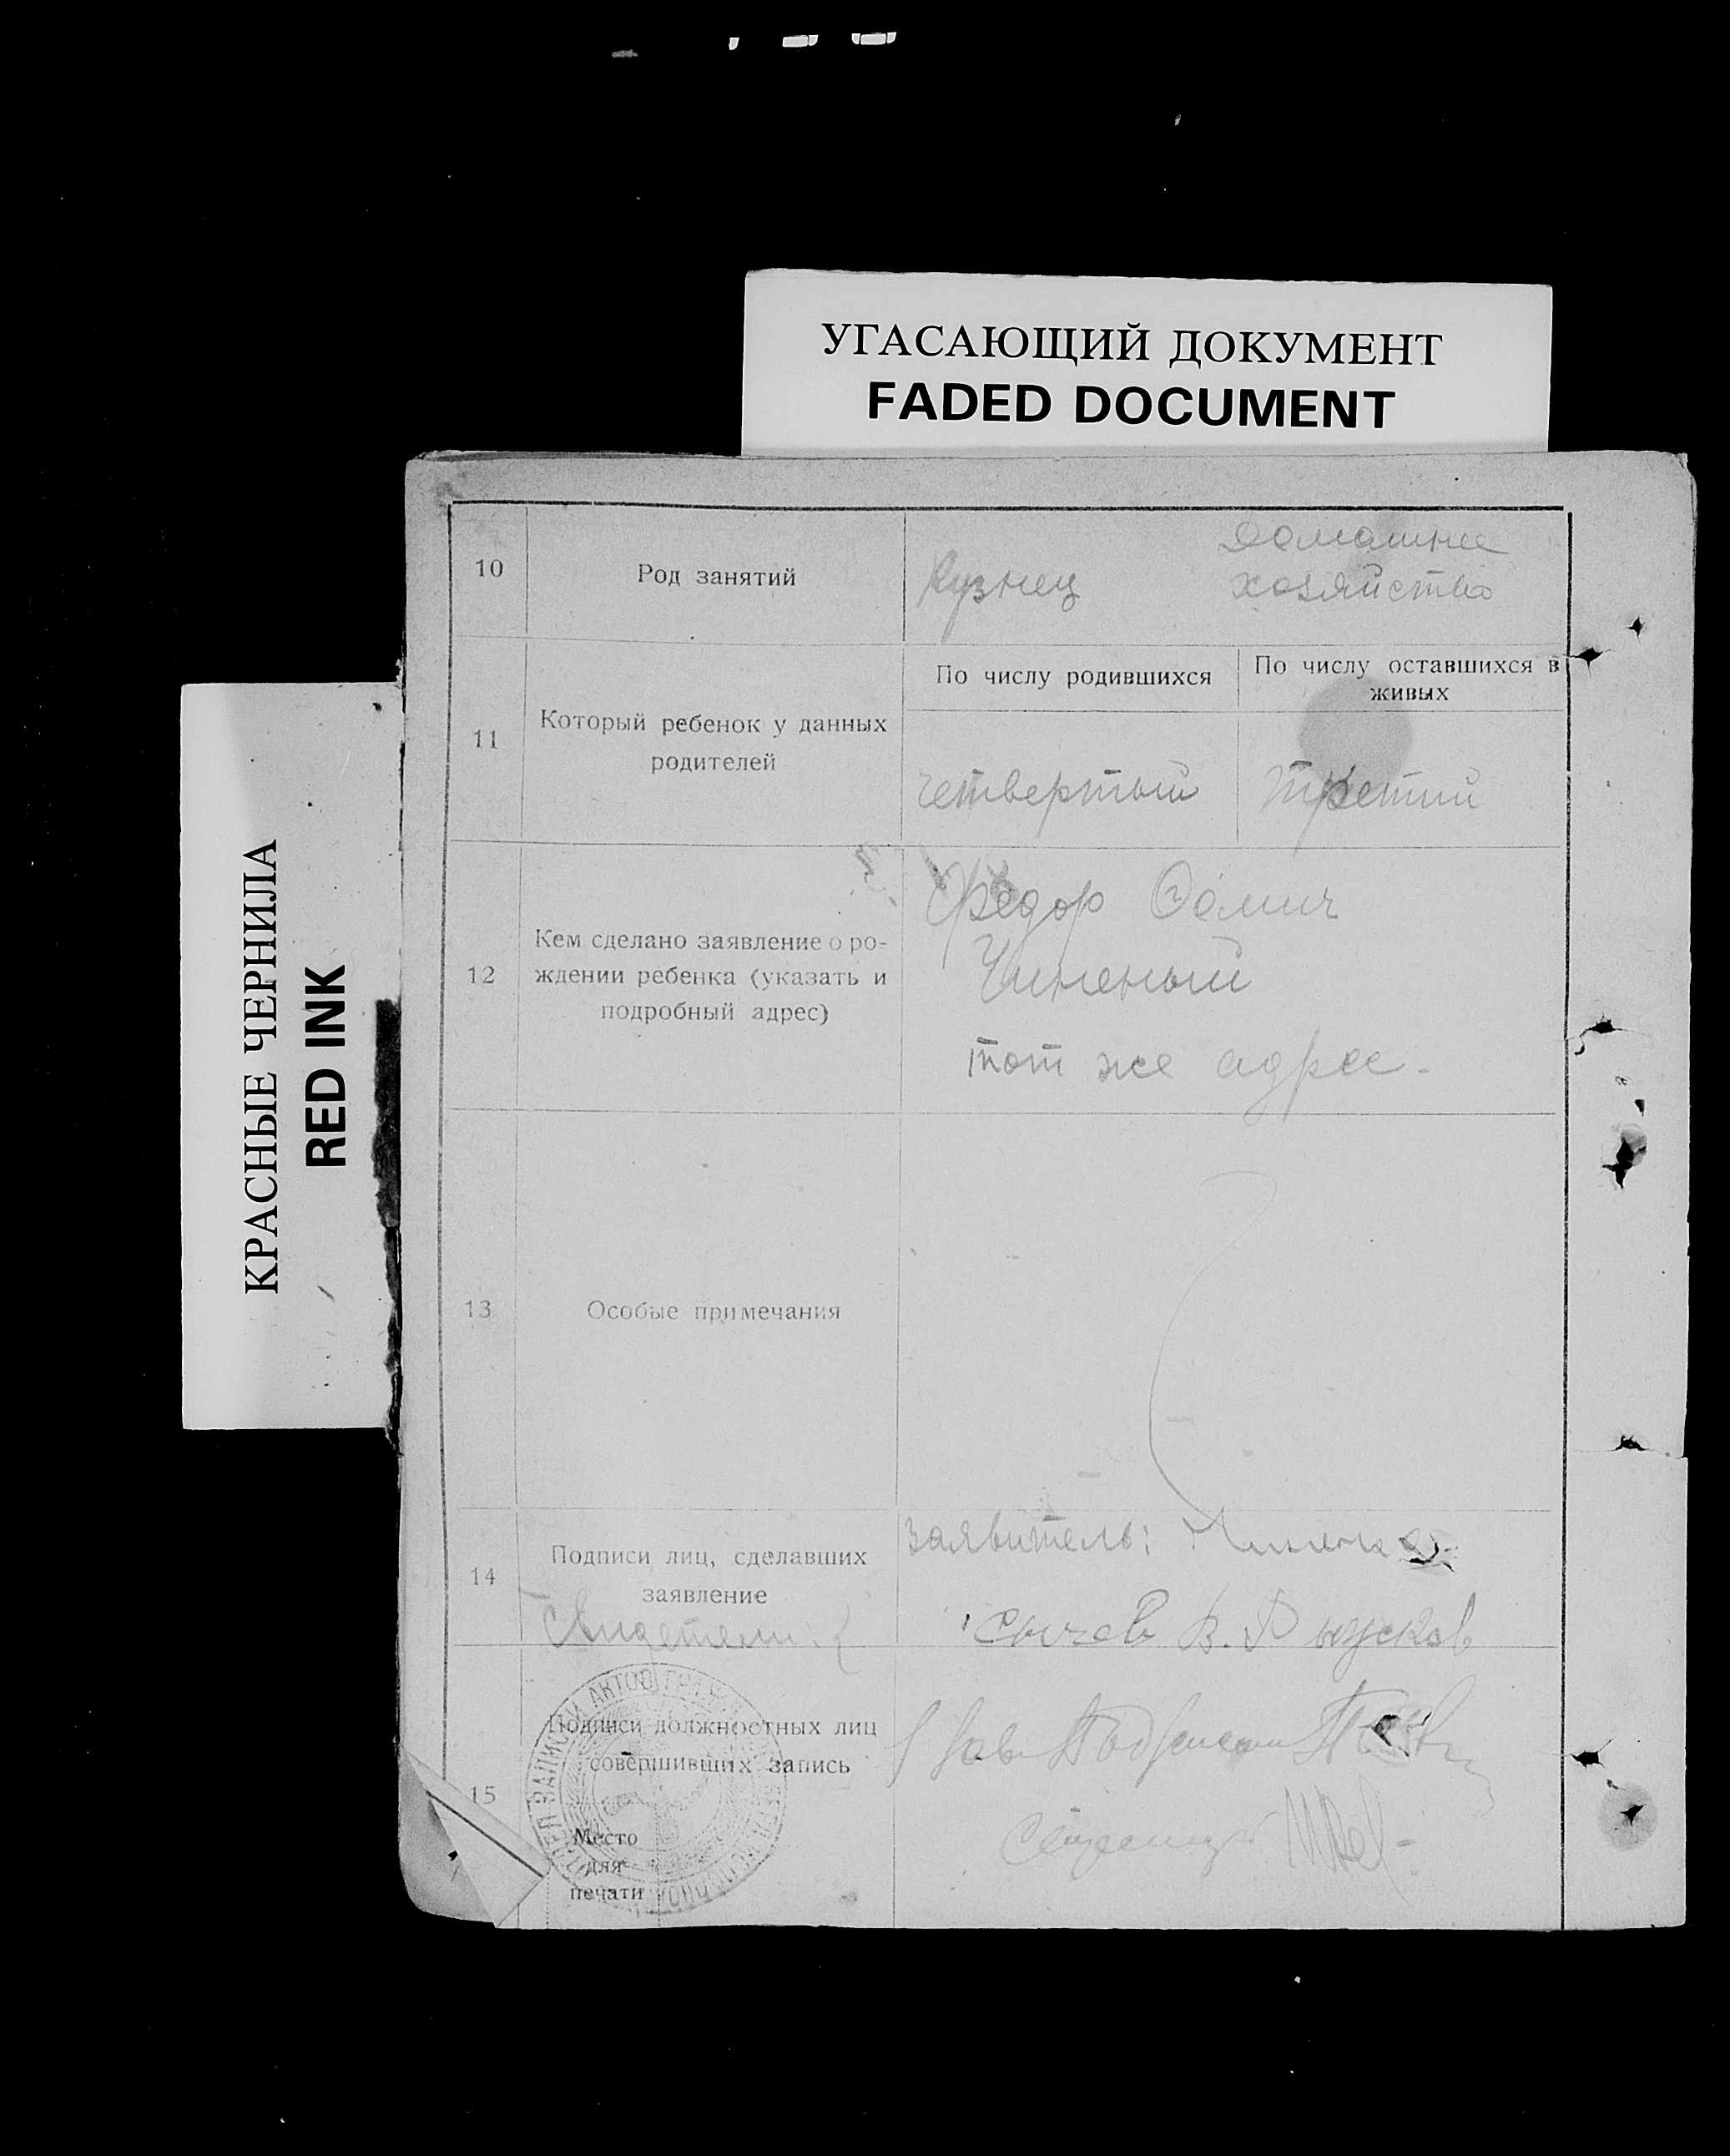 УГАСАЮЩИЙ ДОКУМЕНТ
FADED DOCUMENT
КРАСНЫЕ ЧЕРНИЛА
RED INK
10
Род занятий
Кузнец
Домашнее
хозяйство
11
Который ребенок у данных
родителей
По числу родившихся
По числу оставшихся в
живых
Четвертый
Третий
12
Кем сделано заявление о ро-
ждении ребенка (указать и
подробный адрес)
Федор
Чиненый
тот же адрес.
13
Особые примечания
14
Подписи лиц, сделавших
заявление
Свидетели:
Заявитель:
Сычев В.
15
Подписи должностных лиц
совершивших запись
Место
для
печати
ЗАПИСИ АКТОВ